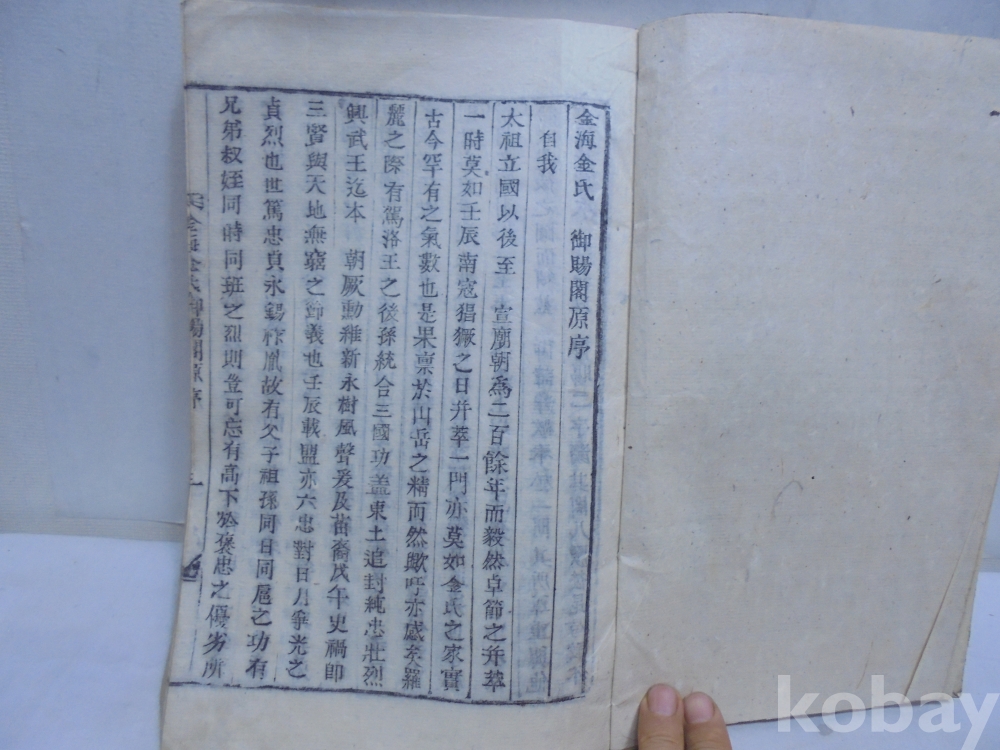 金海金氏 御賜閣原序
自我
太祖立國以後至 宣廟朝爲二百餘年而毅然卓節之并萃
一時莫如壬辰南寇猖獗之日并萃一門亦莫如金氏之家實
古今罕有之氣數也是果禀於山岳之精而然歟吁亦盛矣羅
麗之際有駕洛王之後孫統合三國功盖東土追封純忠壯烈
興武王迄本 朝厥勳維新永樹風聲爰及苗裔戊午史禍卽
三賢與天地無窮之節義也壬辰載盟亦六忠對日月爭光之
貞烈也世篤忠貞永錫祚胤故有父子祖孫同日同扈之功有
兄弟叔姪同時同班之烈則豈可忘有高下於褒忠之優劣所
金海金氏御賜閣原序 三
kobay